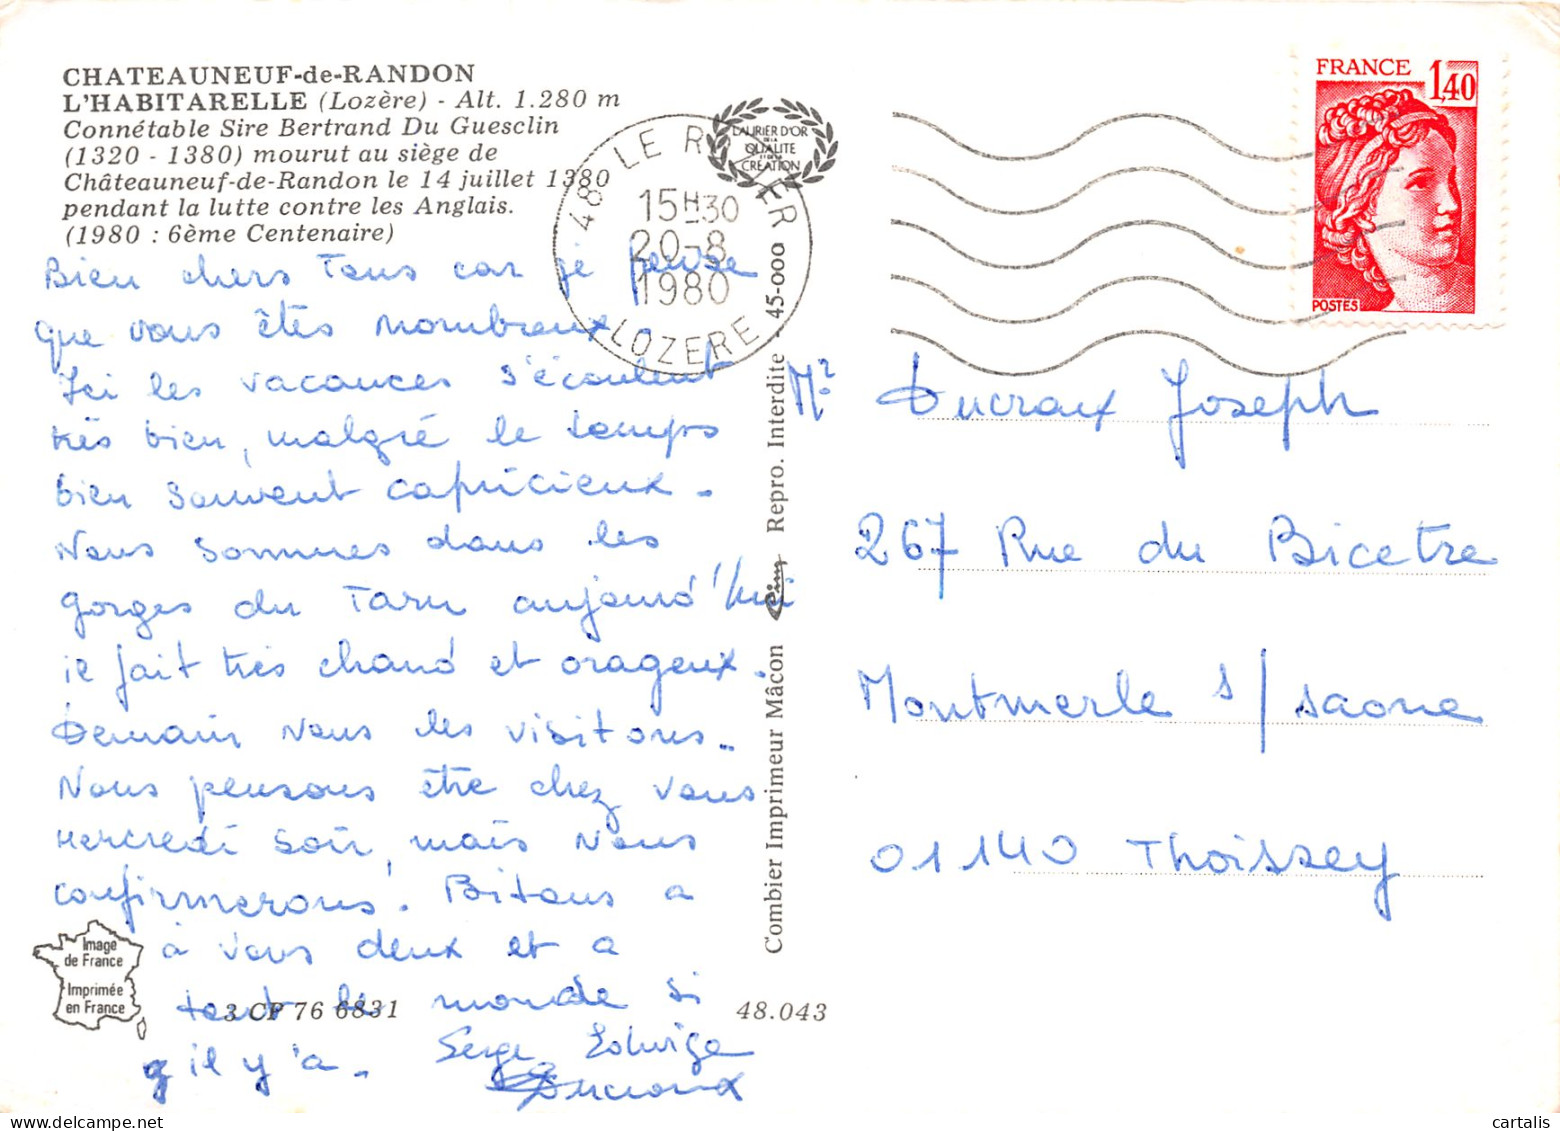 CHATEAUNEUF-de-RANDON
L'HABITARELLE (Lozère) - Alt. 1.280 m
Connétable Sire Bertrand Du Guesclin
(1320 - 1380) mourut au siège de
Châteauneuf-de-Randon le 14 juillet 1380
pendant la lutte contre les Anglais.
(1980 : 6ème Centenaire)
Bien chers Tous car je pense
que vous êtes nombreux.
Ici les vacances s'écoulent
très bien, malgré le temps
bien souvent capricieux.
Nous sommes dans les
gorges du Tarn aujourd'hui
il fait très chaud et orageux.
Demain nous les visitons..
Nous pensons être chez vous
Mercredi soir, mais nous
confirmerons. Bitous a
à vous deux et a
tout le monde si
q il y'a. Serge Edwige
Ducraux
Image
de France
Imprimée
en France
3 CP 76 6831
48.043
48 LE ROZIER
15H30
20-8
1980
LOZERE
LAURIER D'OR
DE LA
QUALITE
ET DE LA
CREATION
Combier Imprimeur Mâcon Cim Repro. Interdite . 45-000
FRANCE 1,40
POSTES
Mr Ducraux Joseph
267 Rue du Bicetre
Montmerle s/saone
01140 Thoissey
cartalis